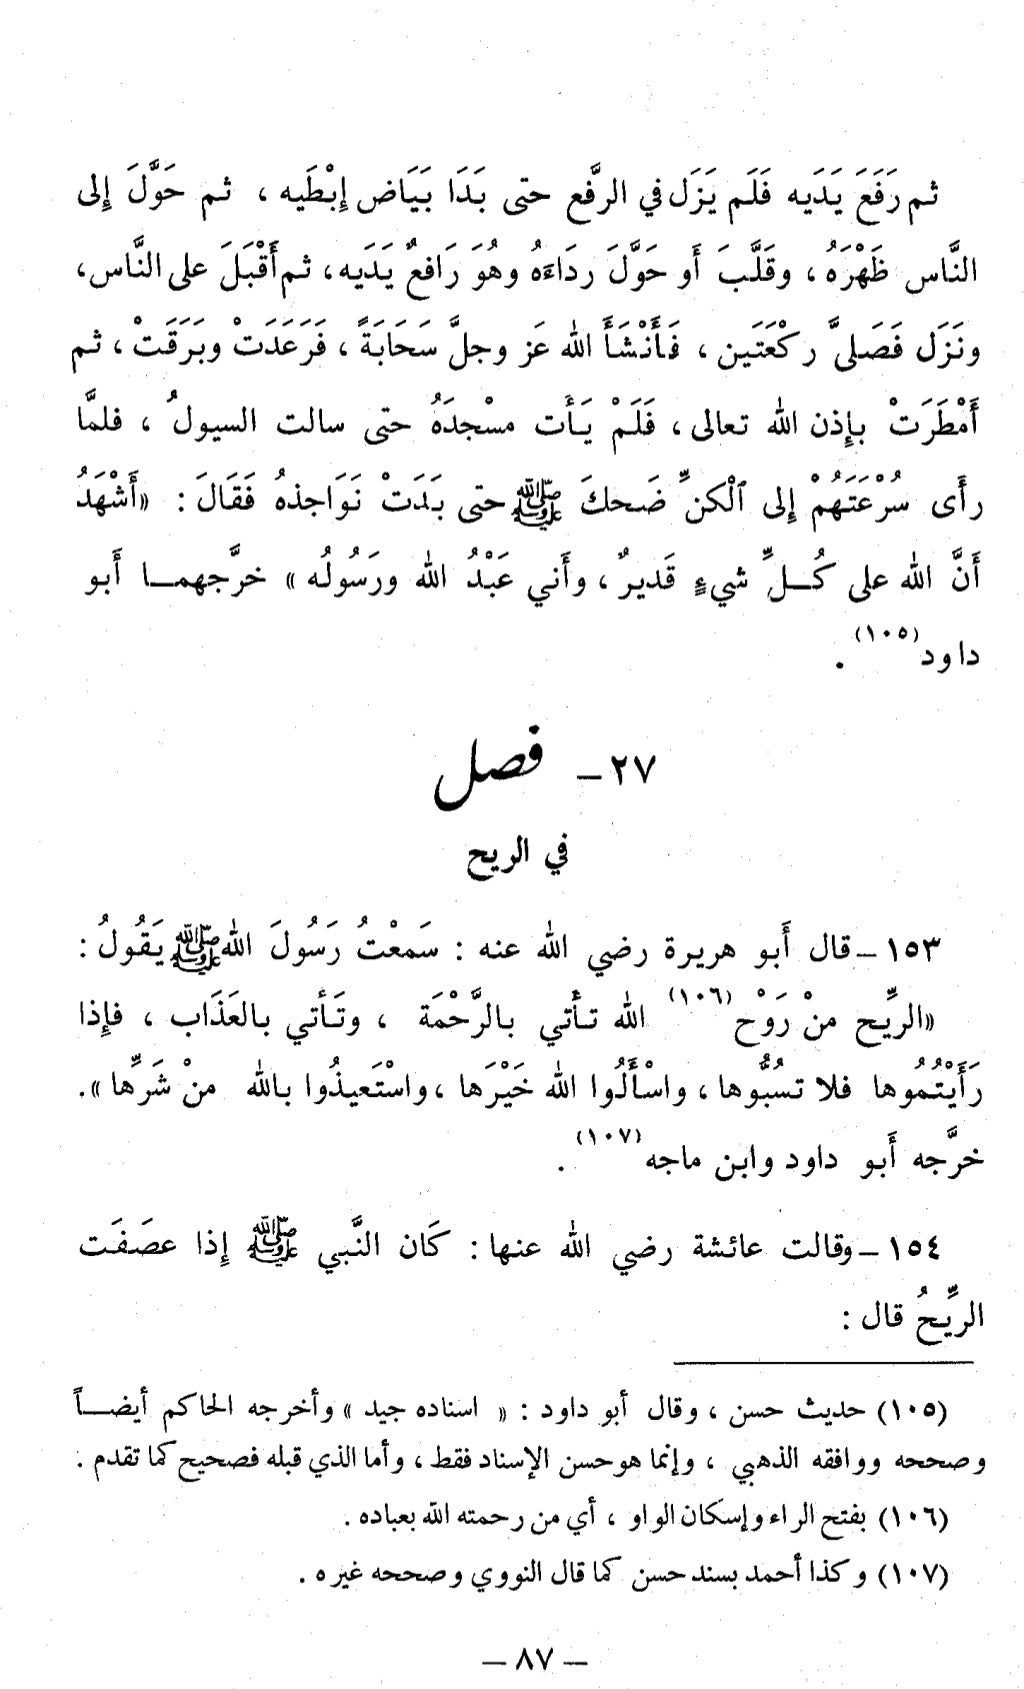 ثم رَفَعَ يَدَيه فَلَم يَزَل في الرَّفع حتى بَدَا بَيَاض إبْطَيه ، ثم حَوَّلَ إلى
النَّاس ظَهْرَهُ ، وقَلَّبَ أَو حَوَّلَ رِدَاءَهُ وهُوَ رَافعٌ يَدَيه ، ثم أَقْبَلَ على النَّاس ،
ونَزَل فَصَلىَّ ركْعَتَين ، فَأَنْشَأَ الله عَز وجلَّ سَحَابَةً ، فَرَعَدَتْ وبَرَقَتْ ، ثم
أَمْطَرَتْ بإِذن الله تعالى ، فَلَمْ يَأت مسْجدَهُ حتى سالت السيولُ ، فلمَّا
رأَى سُرْعَتَهُمْ إلى ٱلْكنِّ ضَحكَ ﷺ حتى بَدَتْ نَوَاجذهُ فَقَالَ : «أَشْهَدُ
أَنَّ الله على كُلِّ شيءٍ قَديرٌ ، وأَني عَبْدُ الله ورَسُولُه » خرَّجهما أَبو
داود(١٠٥) .
٢٧ - فصل
في الريح
١٥٣ - قال أَبو هريرة رضي الله عنه : سَمعْتُ رَسُولَ الله ﷺ يَقُولُ :
«الرِّيح منْ رَوْح(١٠٦) الله تأتي بالرَّحْمَة ، وتَأتي بالعَذَاب ، فإِذا
رَأَيْتُمُوها فلا تسُبُّوها ، واسْأَلُوا الله خَيْرَها ، واسْتَعيذُوا بالله منْ شَرِّها ».
خرَّجه أَبو داود وابن ماجه(١٠٧) .
١٥٤ - وقالت عائشة رضي الله عنها : كَان النَّبي ﷺ إِذا عصَفَت
الرِّيحُ قال :
(١٠٥) حديث حسن ، وقال أبو داود : « اسناده جيد » وأخرجه الحاكم أيضاً
وصححه ووافقه الذهبي ، وإنما هو حسن الإسناد فقط ، وأما الذي قبله فصحيح كما تقدم .
(١٠٦) بفتح الراء وإسكان الواو ، أي من رحمته الله بعباده .
(١٠٧) وكذا أحمد بسند حسن كما قال النووي وصححه غيره .
- ٨٧ -